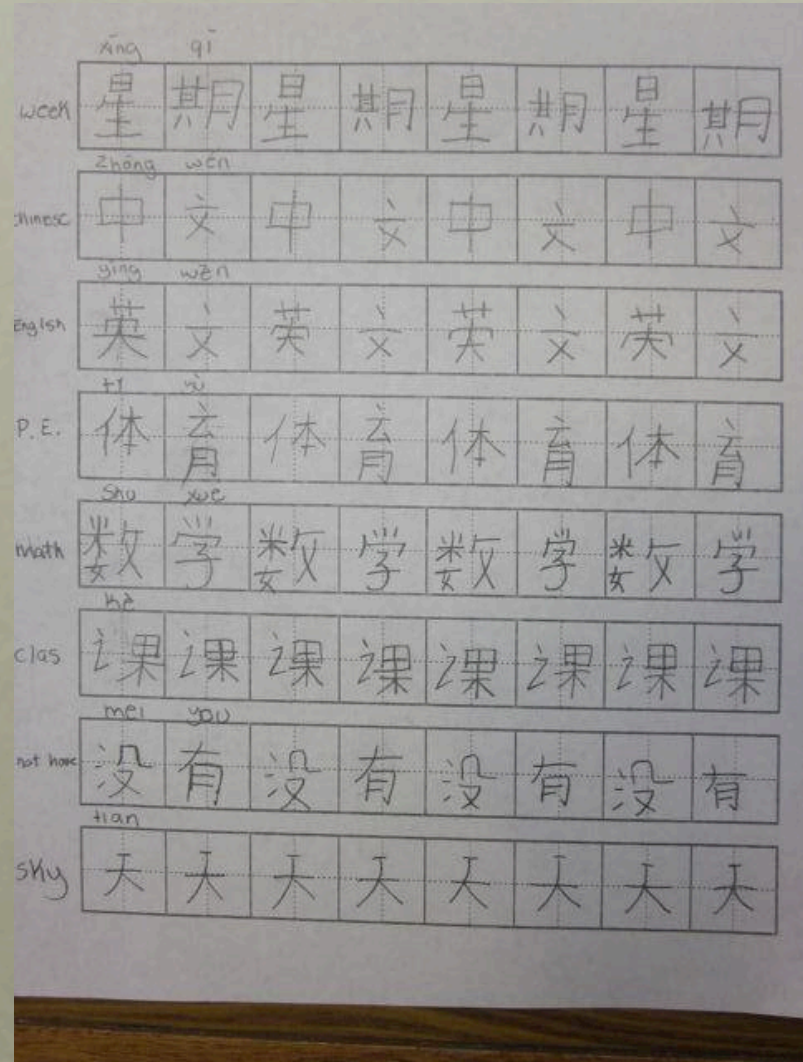 xīng qī
week 星期星期星期星期
zhōng wén
chinesc 中文中文中文中文
yīng wén
English 英文英文英文英文
tǐ yù
P.E. 体育体育体育体育
shu xue
math 数学数学数学数学
kè
clas 课课课课课课课课
mei you
not have 没有没有没有没有
tian
sky 天天天天天天天天